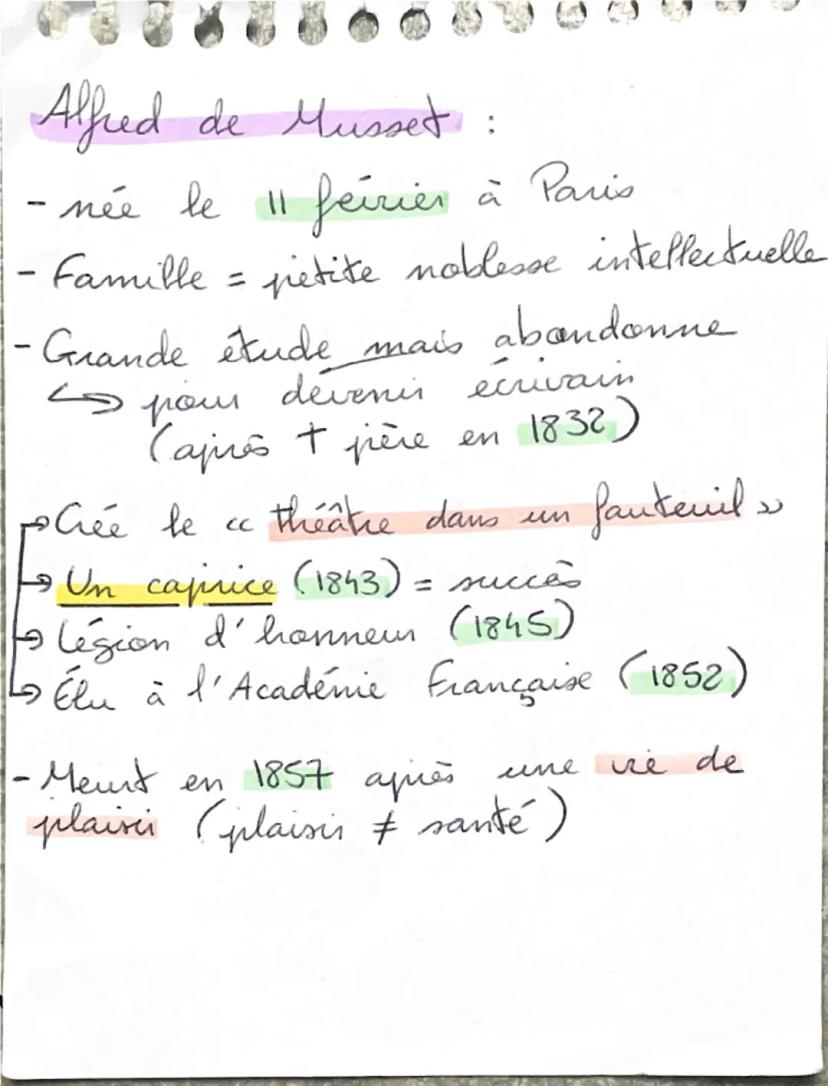 Alfred de Musset :
- née le 11 février à Paris
- Famille = petite noblesse intellectuelle
- Grande étude mais abandonne
↪ pour devenir écrivain
(après † père en 1832)
→ Crée le « théâtre dans un fauteuil »
→ Un caprice (1843) = succès
→ Légion d'honneur (1845)
→ Élu à l'Académie Française (1852)
- Meurt en 1857 après une vie de
plaisir (plaisir ≠ santé)